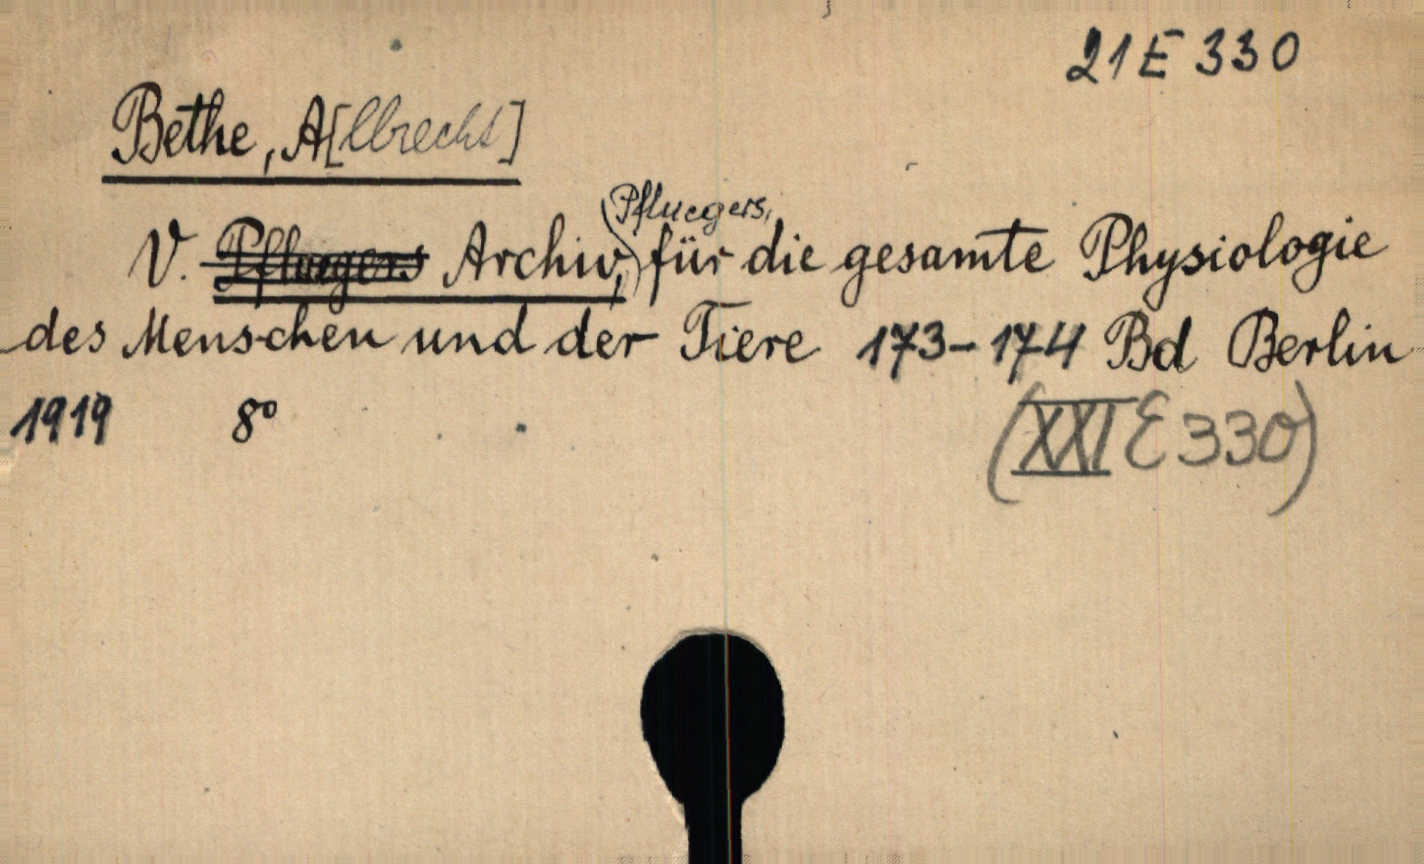 21 E 330
Bethe, A[lbrecht]
Pfluegers,
V. Pfluegers Archiv, für die gesamte Physiologie
des Menschen und der Tiere 173-174 Bd Berlin
1919 8°
(XXI E 330)